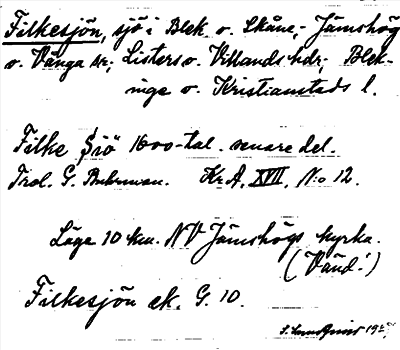 Filkesjön, sjö i Blek. o. Skåne, Jämshög
o. Vånga sn, Listers o. Villands hdr. Blek-
inge o. Kristianstads l.
Filke Siö 1600-tal. senare del.
Trol. G. Buhrman. Kr. A. XVII, No 12.
Läge 10 km. NV Jämshögs kyrka.
(Vänd!)
Filkesjön ek. G. 10.